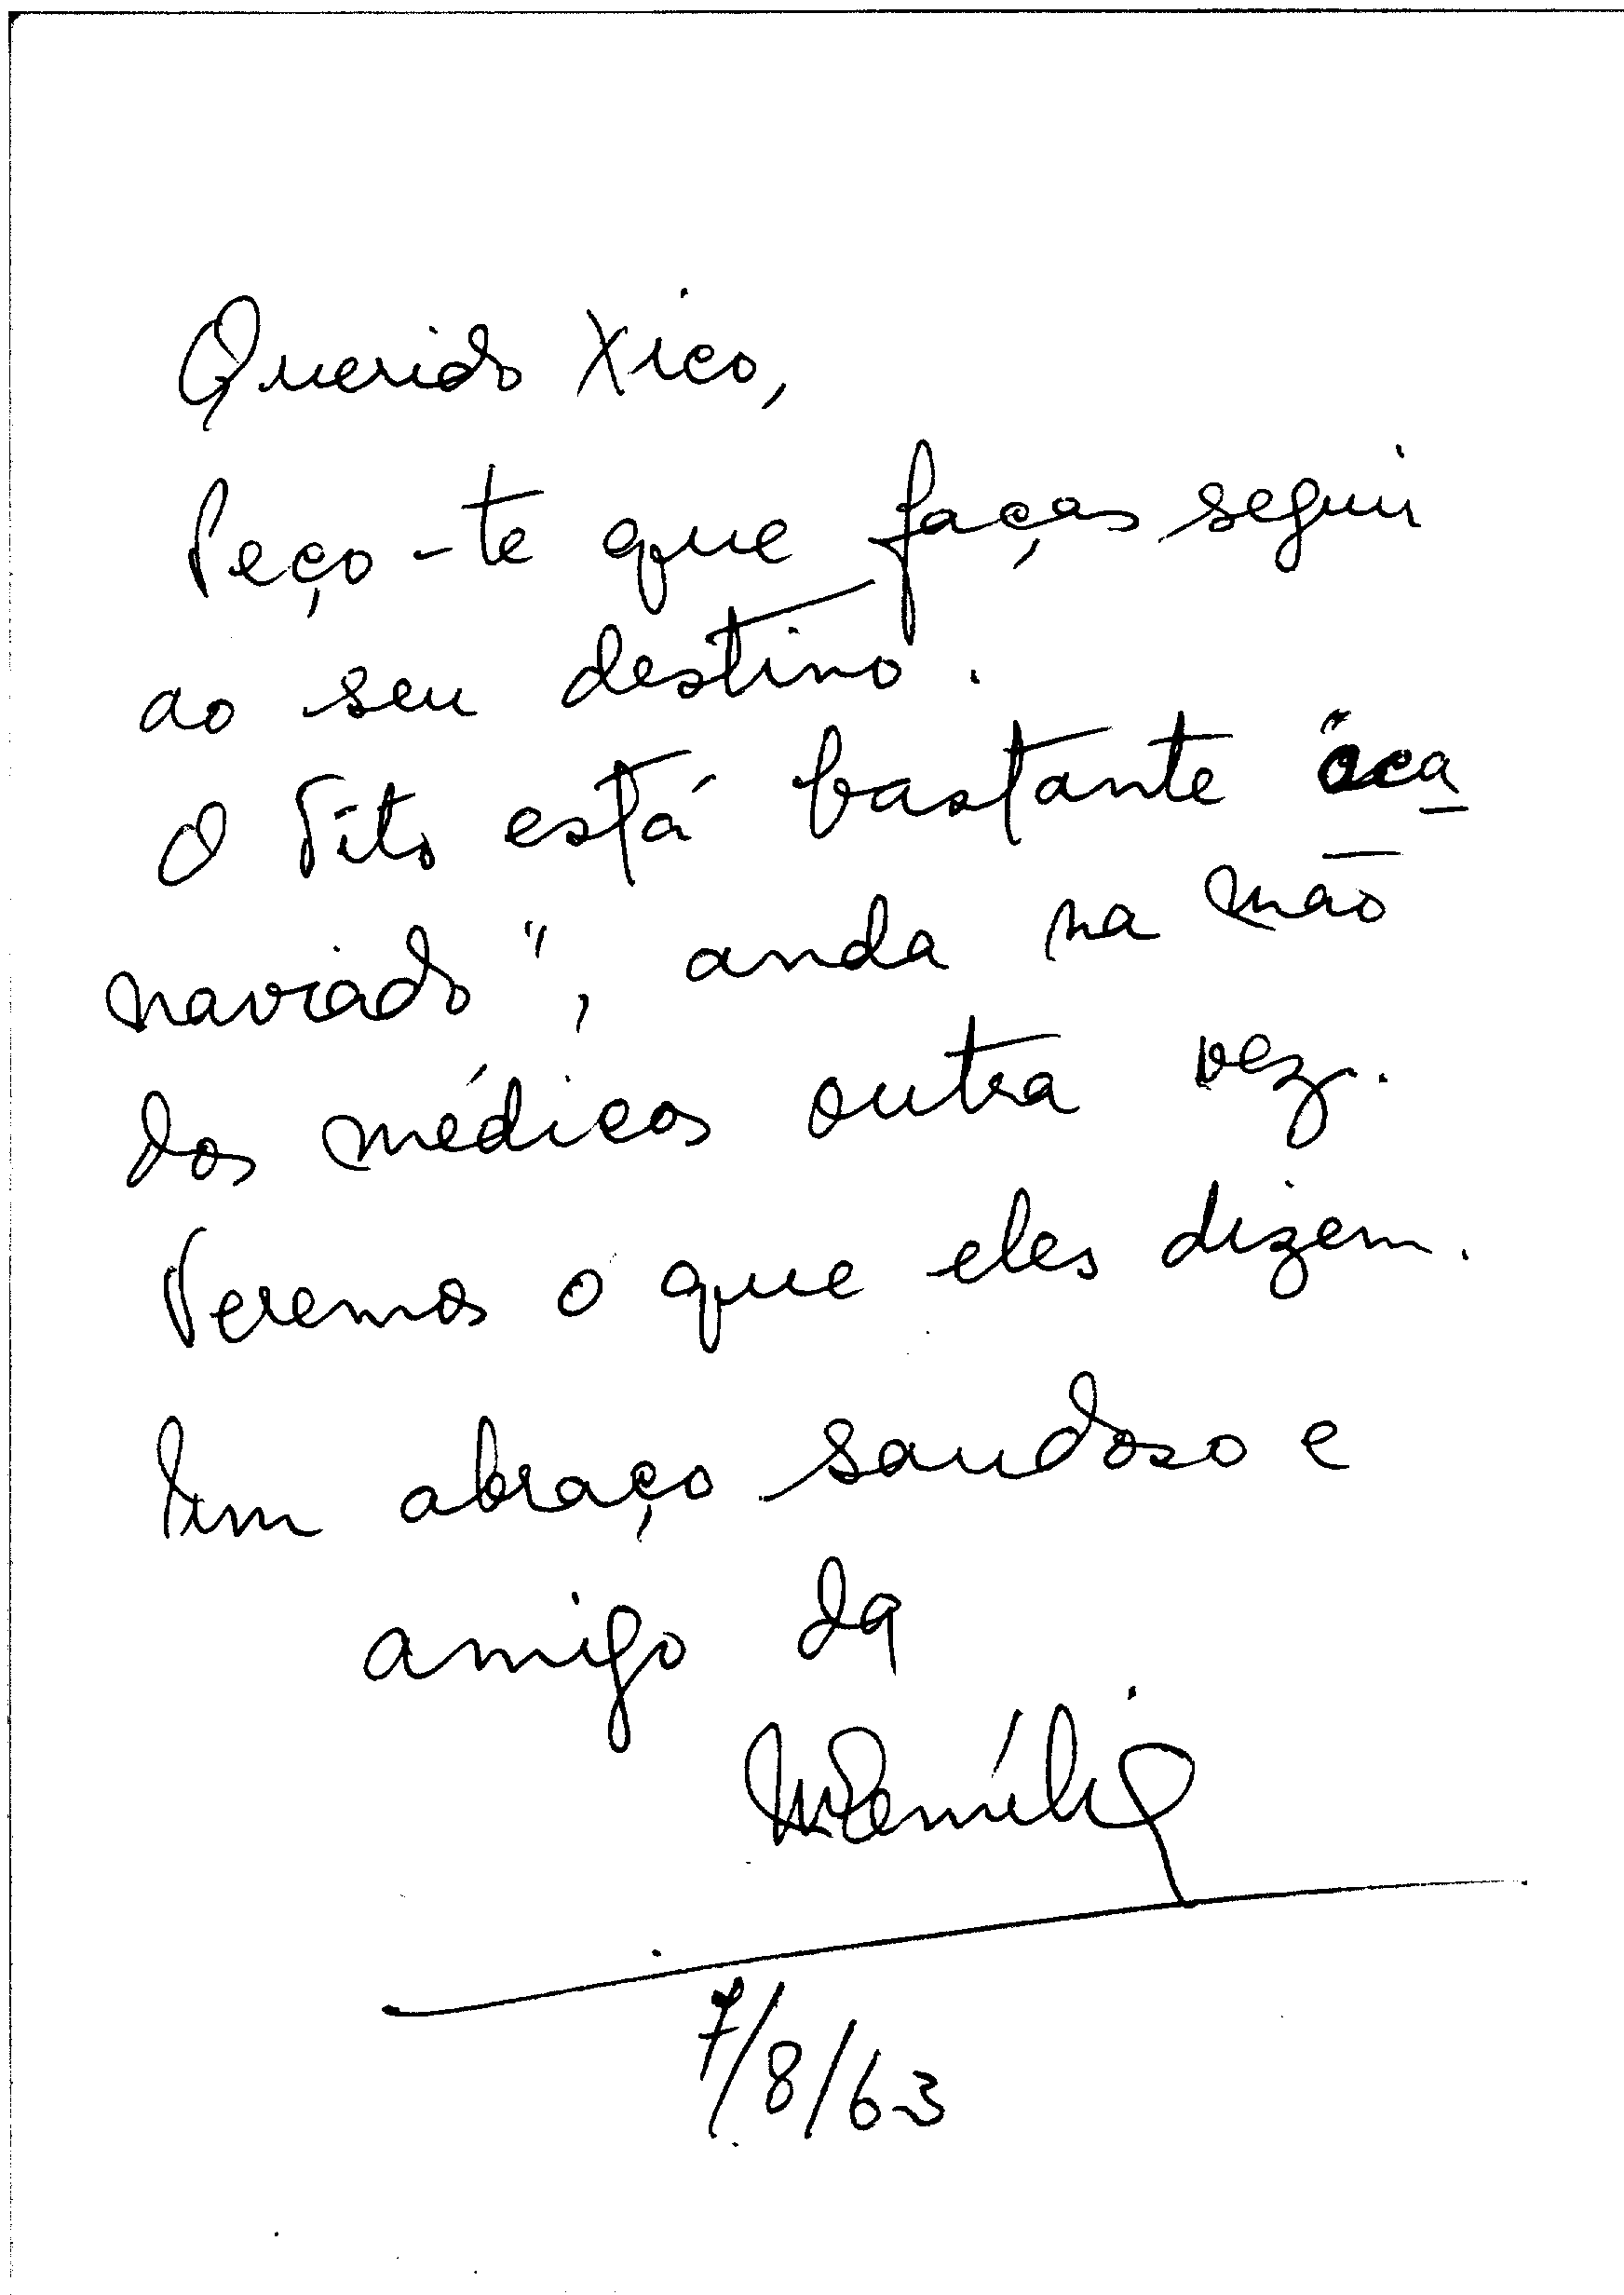 Querido Xico,
Peço-te que faças seguir
ao seu destino.
O Vito está bastante "aca_
naviado", anda na mão
dos médicos outra vez.
Veremos o que eles dizem.
Um abraço saudoso e
amigo da
Mª Emília
7/8/63